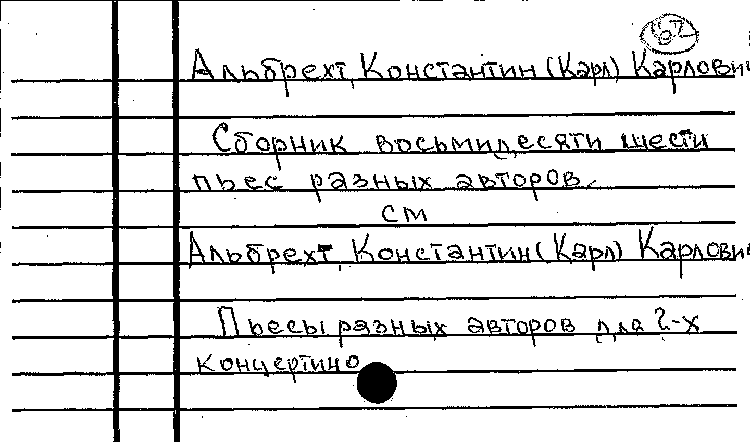 62
Альбрехт, Константин (Карл) Карлович
Сборник восьмидесяти шести
пьес разных авторов.
см
Альбрехт, Константин (Карл) Карлович
Пьесы разных авторов для 2-х
концертино